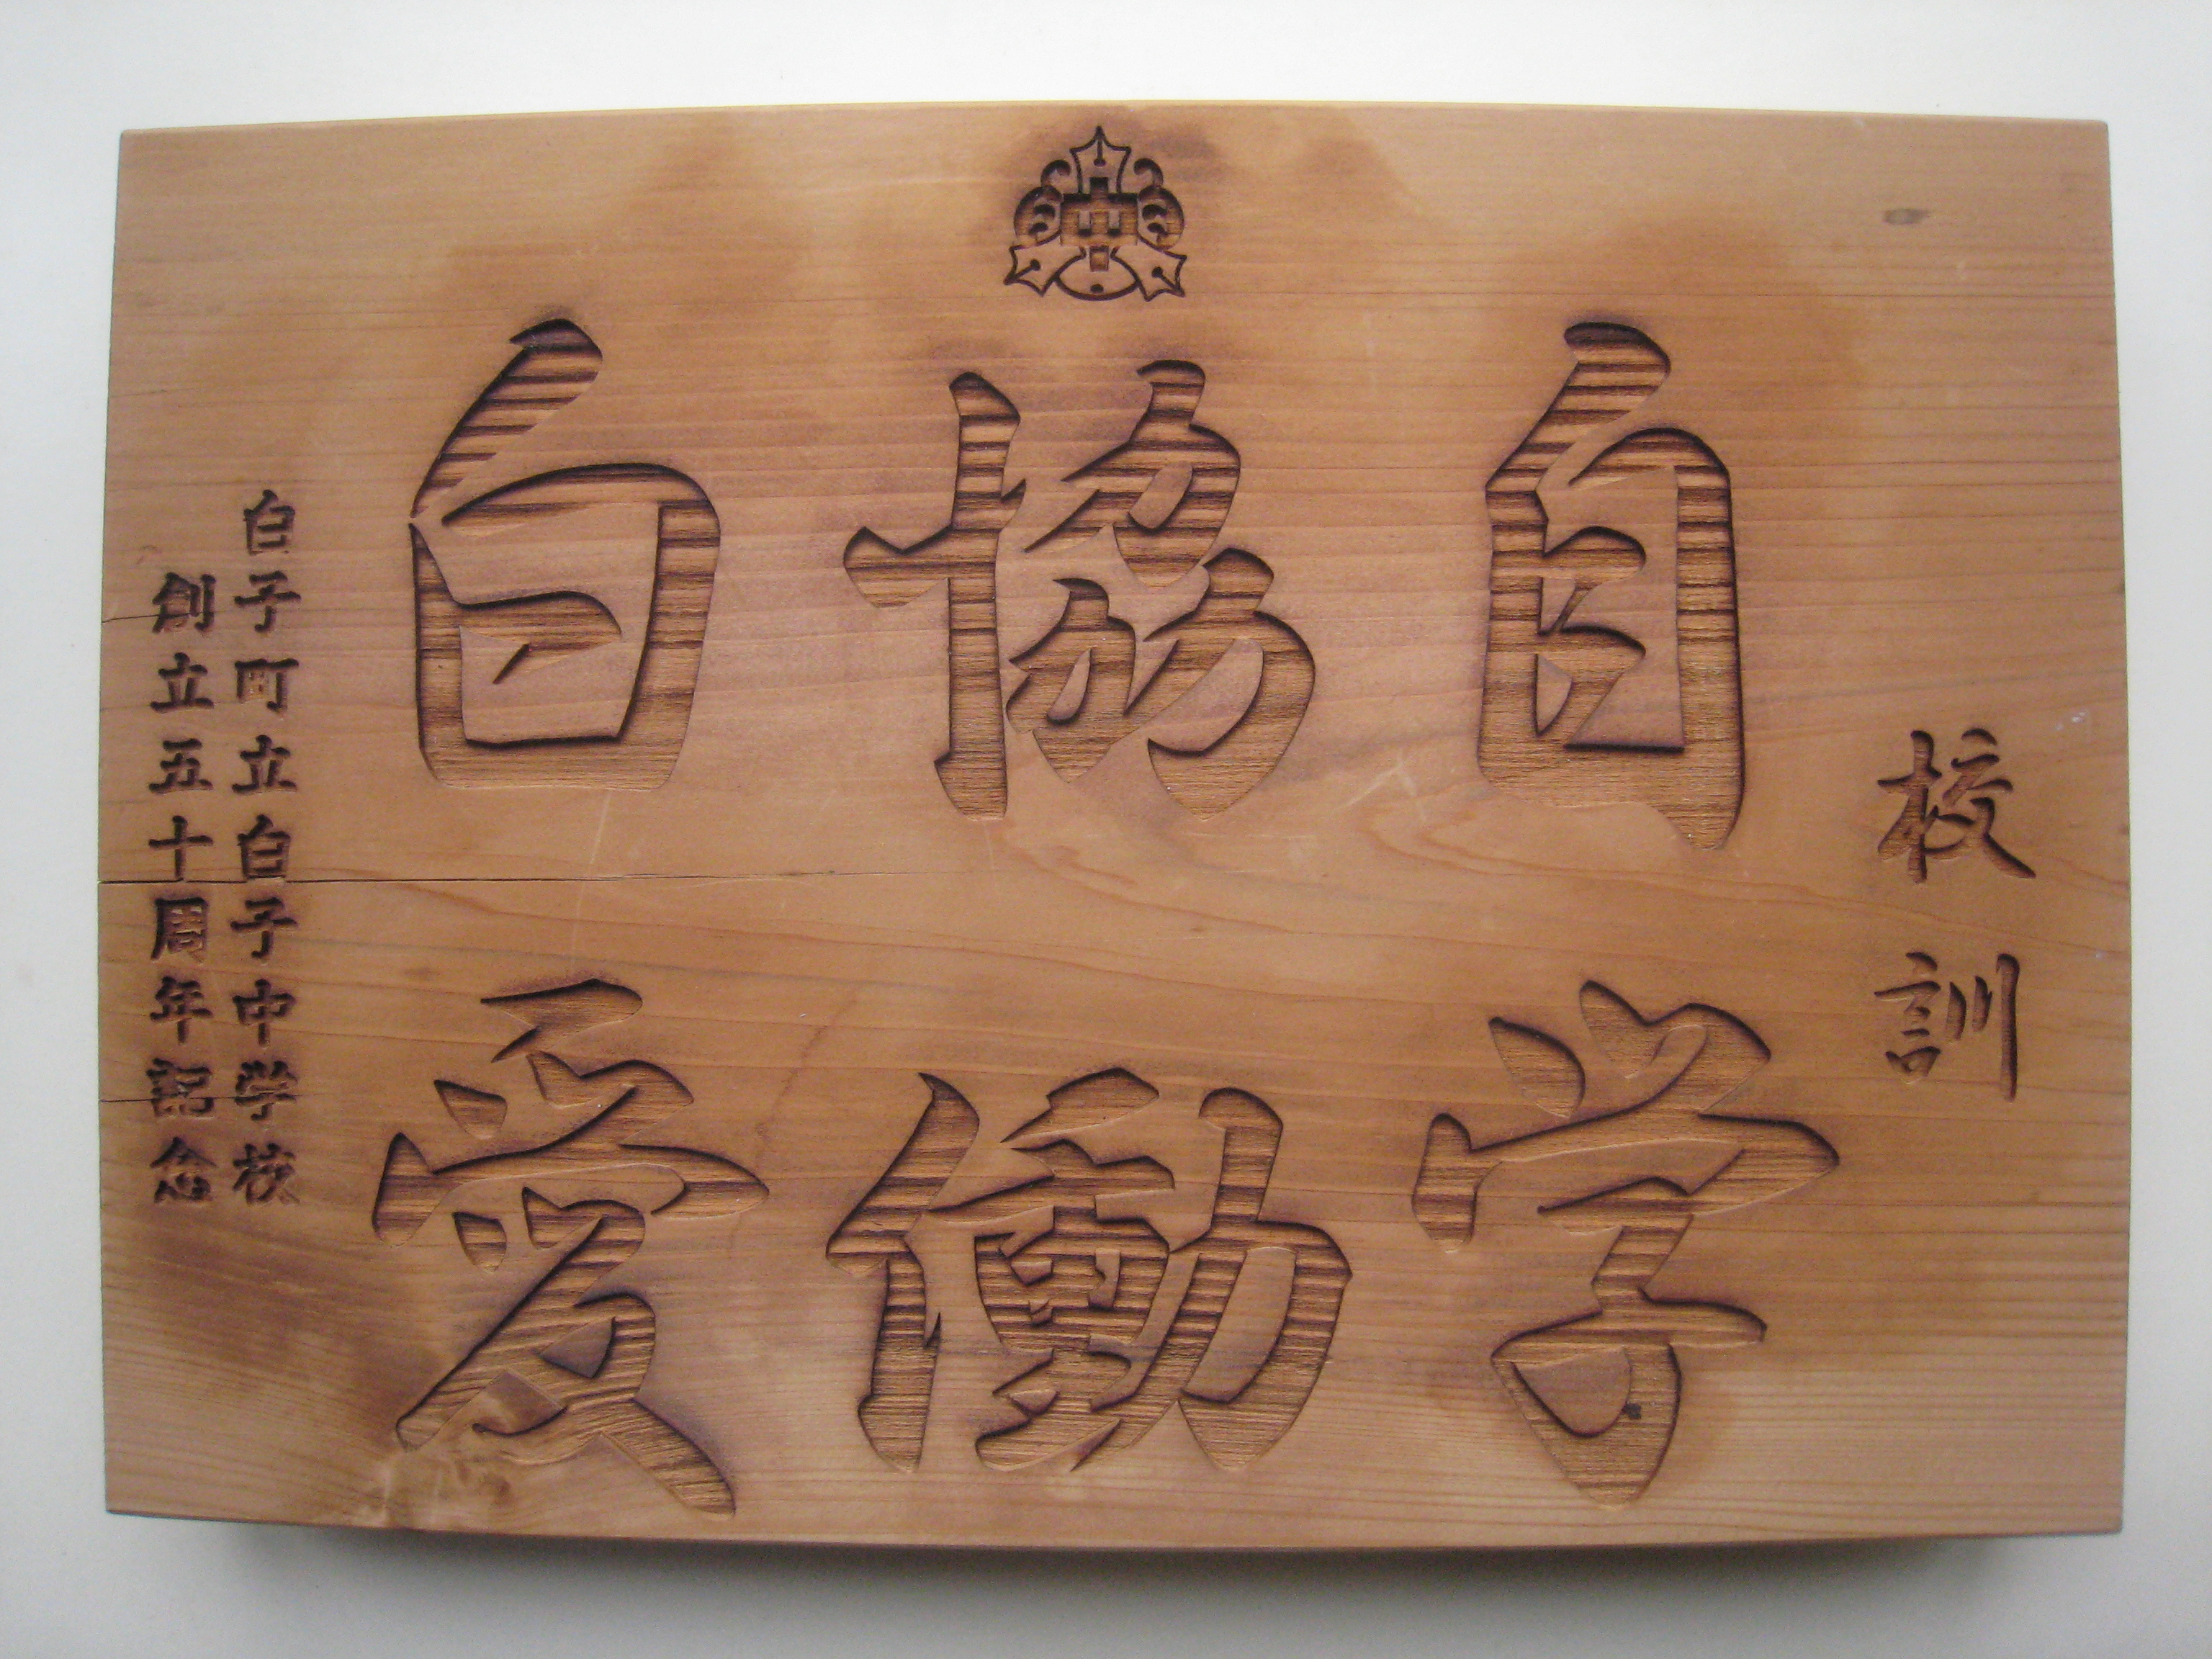 校訓
自学
協働
白愛
白子町立白子中学校
創立五十周年記念